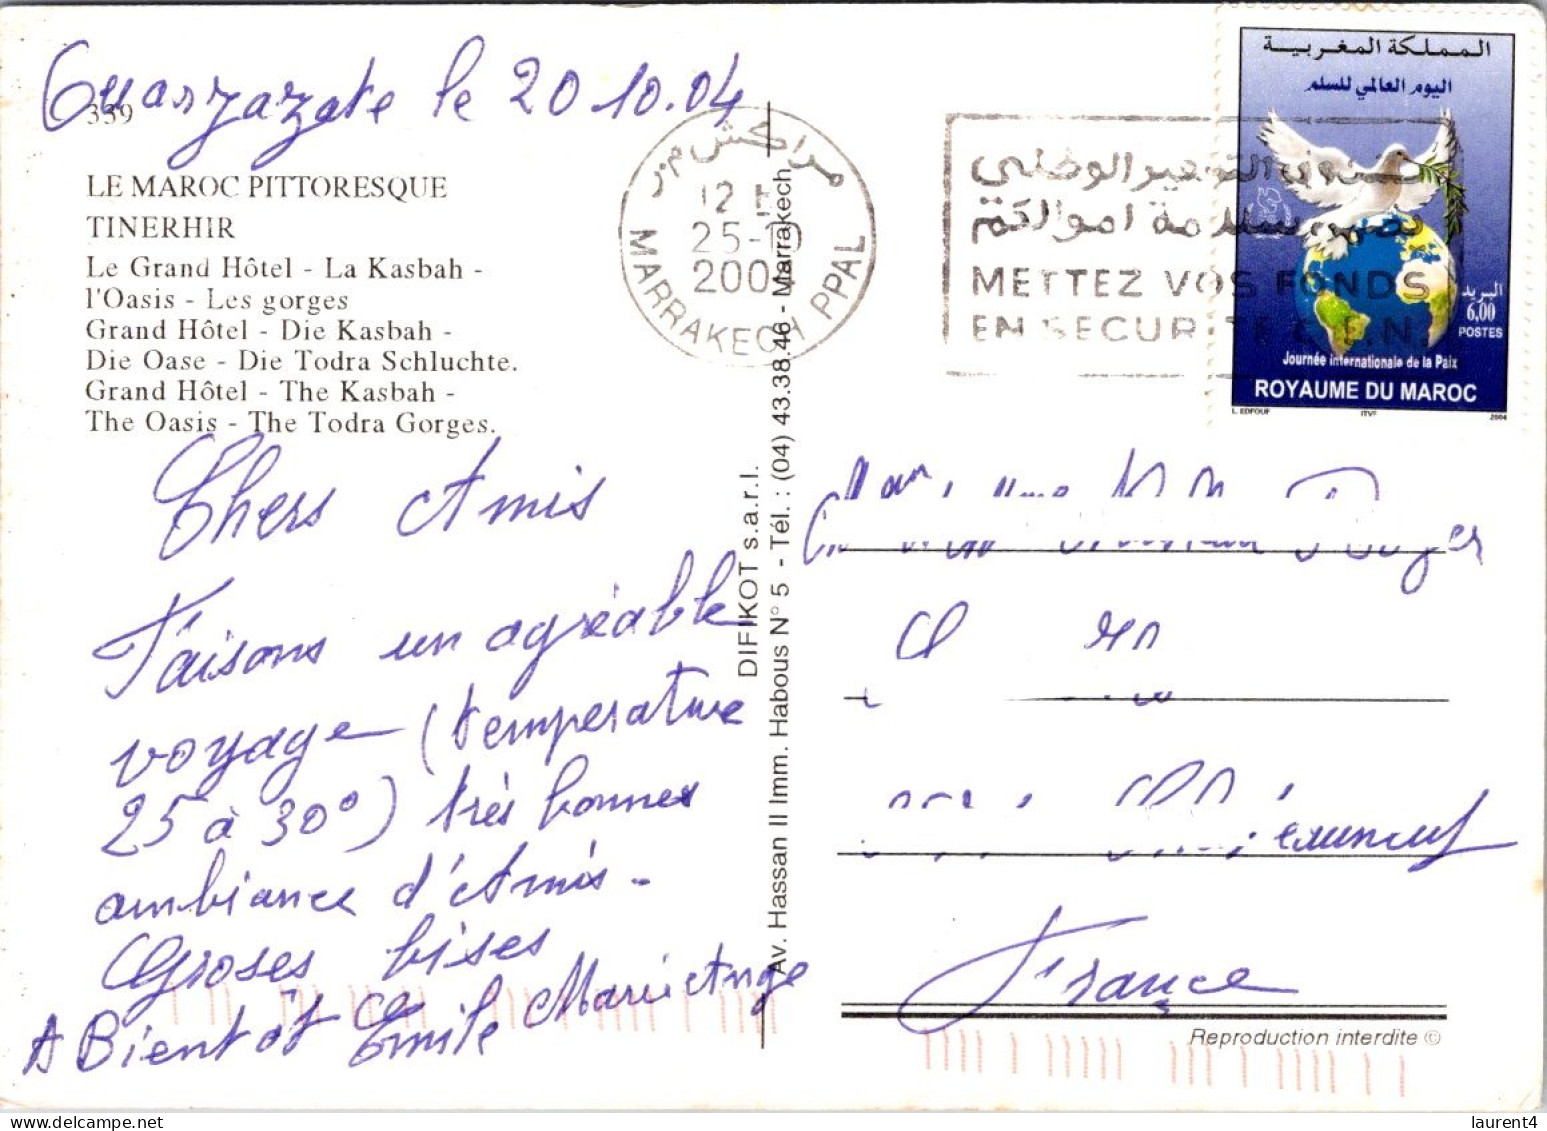 Ouarzazate le 20.10.04
339
LE MAROC PITTORESQUE
TINERHIR
Le Grand Hôtel - La Kasbah -
l'Oasis - Les gorges
Grand Hôtel - Die Kasbah -
Die Oase - Die Todra Schluchte.
Grand Hôtel - The Kasbah -
The Oasis - The Todra Gorges.
Chers Amis
Faisons un agréable
voyage (température
25 à 30°) très bonnes
ambiance d'Amis -
Groses bises
A Bientôt Emile Marie Ange
DIFIKOT s.a.r.l.
Av. Hassan II Imm. Habous N° 5 - Tél. : (04) 43.38.46 - Marrakech
مراكش م.ر
12
25-10
200
MARRAKECH PPAL
صندوق التوفير الوطني
سلامة اموالكم
METTEZ VOS FONDS
EN SECURITE C.E.N.
المملكة المغربية
اليوم العالمي للسلم
البريد
6,00
POSTES
Journée internationale de la Paix
ROYAUME DU MAROC
L. EDFOUF ITVF 2004
France
Reproduction interdite ©
laurent4